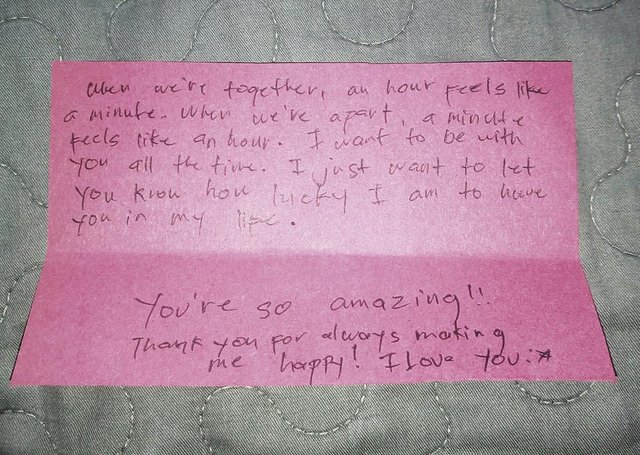 When we're together, an hour feels like
a minute. When we're apart, a minute
feels like an hour. I want to be with
you all the time. I just want to let
you know how lucky I am to have
you in my life.
You're so amazing!!
Thank you for always making
me happy! I love you :*